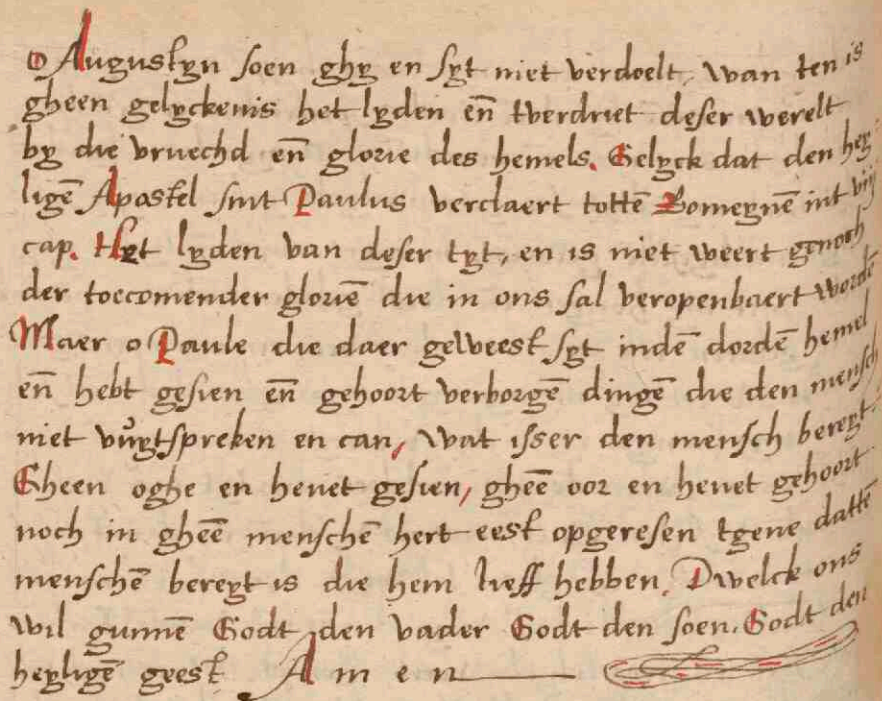 O Augustyn soen ghy en syt niet verdoelt, wan ten is
gheen gelyckenis het lyden en̄ tverdriet deser werelt
by die vruechd en̄ glorie des hemels. Gelyck dat den hey
ligē Apostel sint Paulus verclaert tottē Romeynē int viij
cap. Hyt lyden van deser tyt, en is niet weert genoch
der toecomender gloriē die in ons sal veropenbaert wordē
Maer o Paule die daer geweest syt indē dordē hemel
en̄ hebt gesien en̄ gehoort verborgē dingē die den mensch
niet vuytspreken en can, wat isser den mensch bereyt.
Gheen oghe en hevet gesien, gheē oor en hevet gehoort
noch in gheē menschē hert eest opgeresen tgene dattē
menschē bereyt is die hem lieff hebben. Dwelck ons
wil gunnē Godt den vader Godt den soen. Godt den
heyligē geest Amen